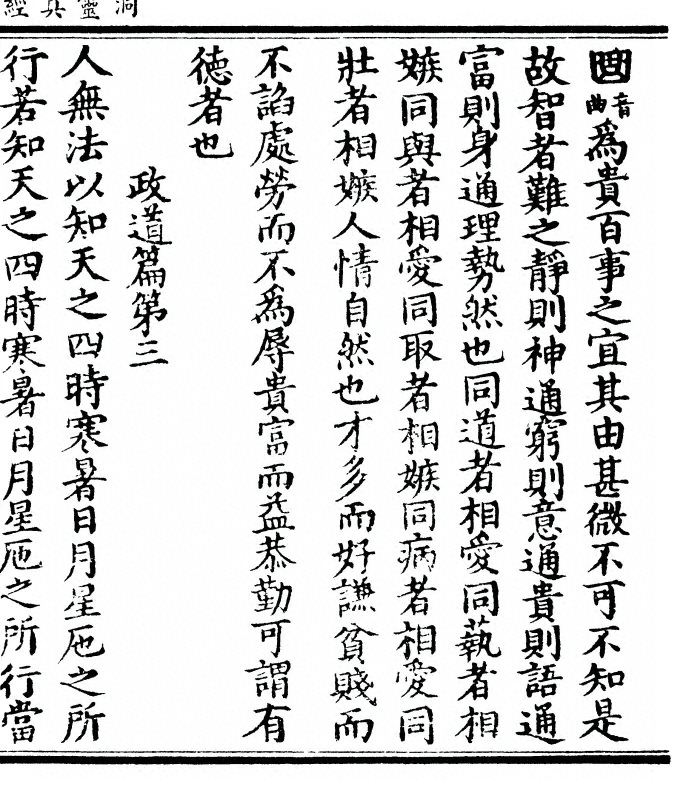 洞靈真經
音曲爲貴百事之宜其由甚微不可不知是
故智者難之靜則神通窮則意通貴則語通
富則身通理勢然也同道者相愛同藝者相
嫉同與者相愛同取者相嫉同病者相愛同
壯者相嫉人情自然也才多而好謙貧賤而
不諂處勞而不爲辱貴富而益恭勤可謂有
德者也
政道篇第三
人無法以知天之四時寒暑日月星辰之所
行若知天之四時寒暑日月星辰之所行當